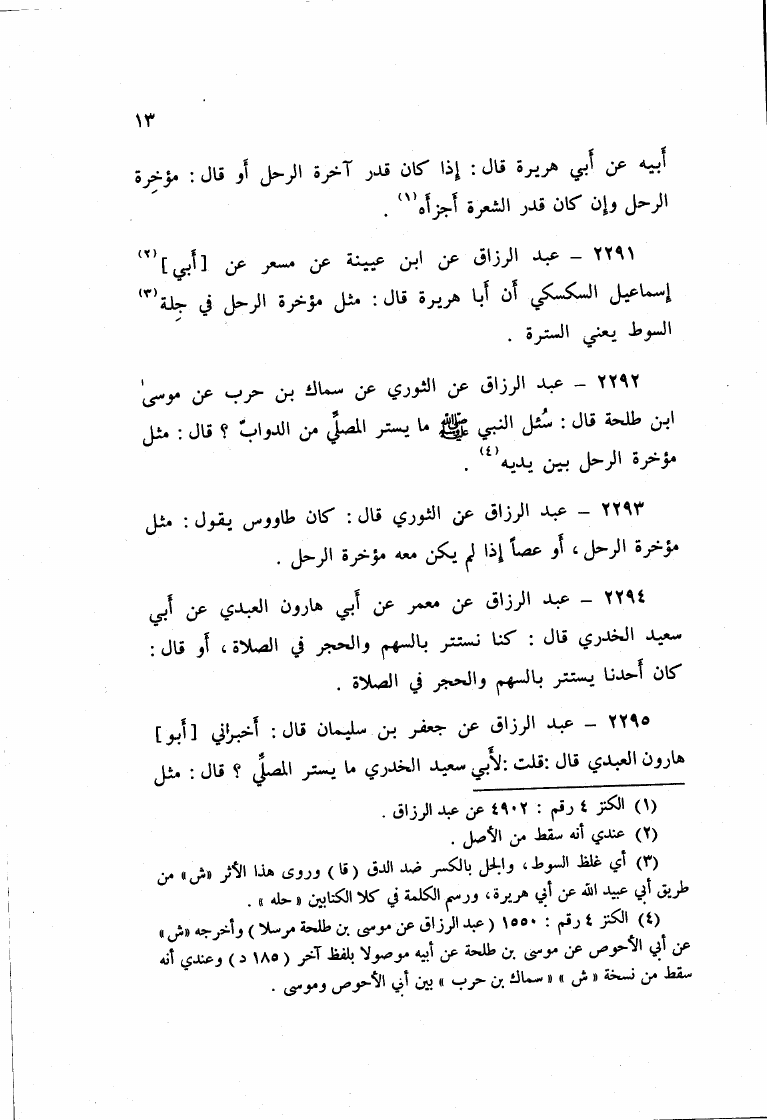 ١٣
أبيه عن أبي هريرة قال : إذا كان قدر آخرة الرحل أو قال : مؤخِرة
الرحل وإن كان قدر الشعرة أجزأه(١) .
٢٢٩١ – عبد الرزاق عن ابن عيينة عن مسعر عن [أبي](٢)
إسماعيل السكسكي أن أبا هريرة قال : مثل مؤخرة الرحل في جِلة(٣)
السوط يعني السترة .
٢٢٩٢ – عبد الرزاق عن الثوري عن سماك بن حرب عن موسىٰ
ابن طلحة قال : سُئل النبي ﷺ ما يستر المصلِّي من الدوابّ ؟ قال : مثل
مؤخرة الرحل بين يديه(٤) .
٢٢٩٣ – عبد الرزاق عن الثوري قال : كان طاووس يقول : مثل
مؤخرة الرحل ، أو عصاً إذا لم يكن معه مؤخرة الرحل .
٢٢٩٤ – عبد الرزاق عن معمر عن أبي هارون العبدي عن أبي
سعيد الخدري قال : كنا نستتر بالسهم والحجر في الصلاة ، أو قال :
كان أحدنا يستتر بالسهم والحجر في الصلاة .
٢٢٩٥ – عبد الرزاق عن جعفر بن سليمان قال : أخبرني [أبو]
هارون العبدي قال :قلت :لأبي سعيد الخدري ما يستر المصلِّي ؟ قال : مثل
(١) الكنز ٤ رقم : ٤٩٠٢ عن عبد الرزاق .
(٢) عندي أنه سقط من الأصل .
(٣) أي غلظ السوط ، والجل بالكسر ضد الدق ( قا ) وروى هذا الأثر «ش» من
طريق أبي عبيد الله عن أبي هريرة ، ورسم الكلمة في كلا الكتابين « حله » .
(٤) الكنز ٤ رقم : ١٥٥٠ ( عبد الرزاق عن موسى بن طلحة مرسلا ) وأخرجه «ش»
عن أبي الأحوص عن موسى بن طلحة عن أبيه موصولا بلفظ آخر ( ١٨٥ د ) وعندي أنه
سقط من نسخة « ش » « سماك بن حرب » بين أبي الأحوص وموسى .